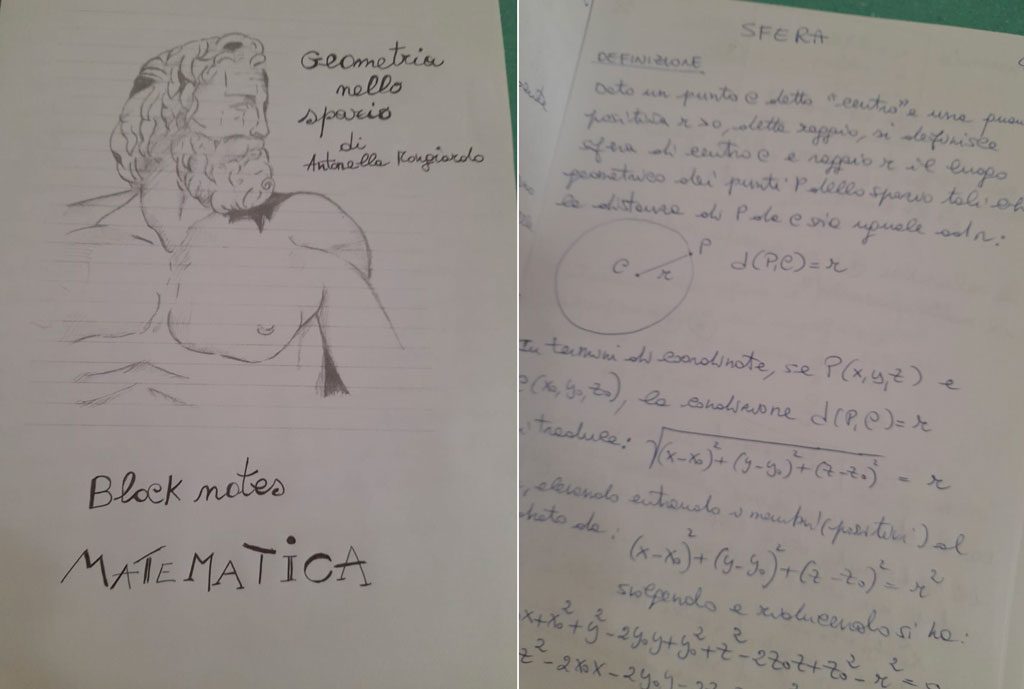 Geometria
nello
spazio
di
Antonella Kongiardo
Block notes
MATEMATICA
SFERA
DEFINIZIONE
Dato un punto C detto "centro" e una
positiva r>0, detta raggio, si definisce
sfera di centro C e raggio r il luogo
geometrico dei punti P dello spazio tali
la distanza di P da C sia uguale ad r:
C r P d(P,C)=r
In termini di coordinate, se P(x,y,z) e
C(x₀,y₀,z₀), la condizione d(P,C)=r
traduce: √(x-x₀)²+(y-y₀)²+(z-z₀)² = r
elevando entrambi i membri (positivi) al
(x-x₀)²+(y-y₀)²+(z-z₀)²=r²
svolgendo e riducendo si ha:
x+x₀²+y²-2y₀y+y₀²+z²-2z₀z+z₀²-r²=0
z²-2x₀x-2y₀y